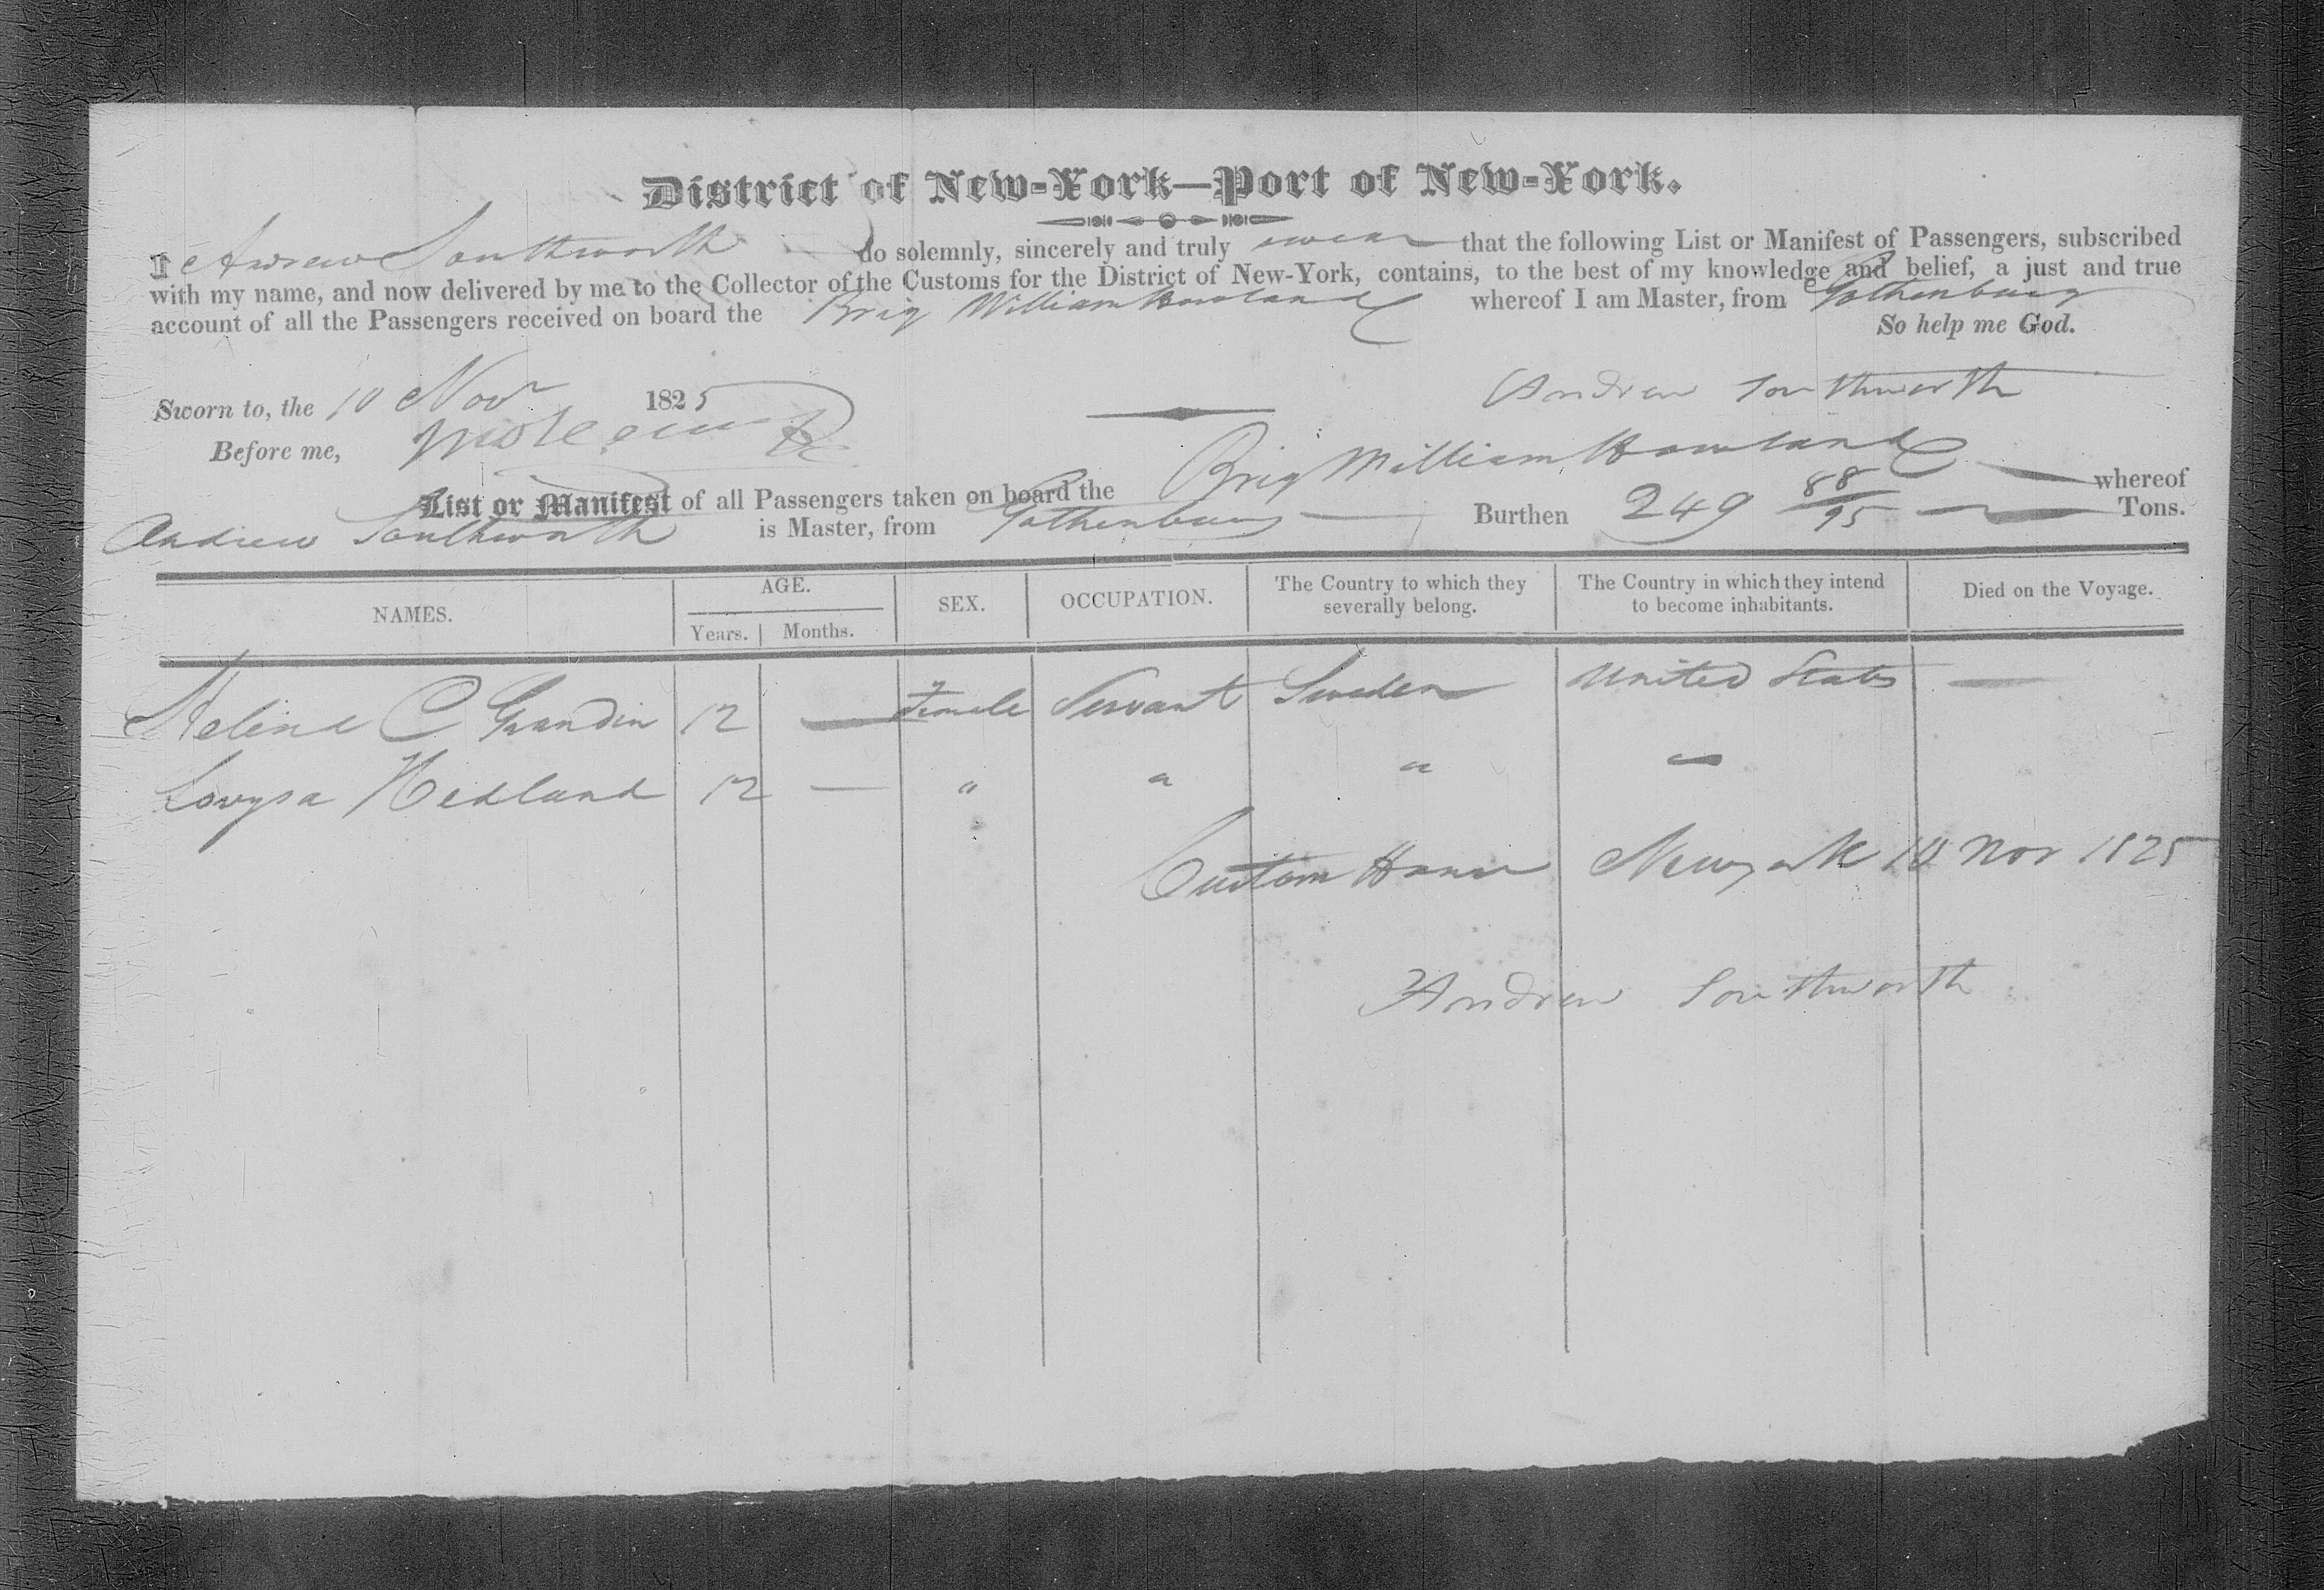 District of New-York—Port of New-York.
I Andrew Southworth do solemnly, sincerely and truly swear that the following List or Manifest of Passengers, subscribed
with my name, and now delivered by me to the Collector of the Customs for the District of New-York, contains, to the best of my knowledge and belief, a just and true
account of all the Passengers received on board the Brig William Howland whereof I am Master, from Gothenburg
So help me God.
Sworn to, the 10 Nov 1825 Andrew Southworth
Before me,
List or Manifest of all Passengers taken on board the Brig William Howland whereof
Andrew Southworth is Master, from Gothenburg Burthen 249 88/95 Tons.
NAMES. AGE. Years. Months. SEX. OCCUPATION. The Country to which they severally belong. The Country in which they intend to become inhabitants. Died on the Voyage.
Helena C Grandin 12 — Female Servant Sweden United States —
Lovysa Hedlund 12 — " " " "
Custom House New york 10 Nov 1825
Andrew Southworth